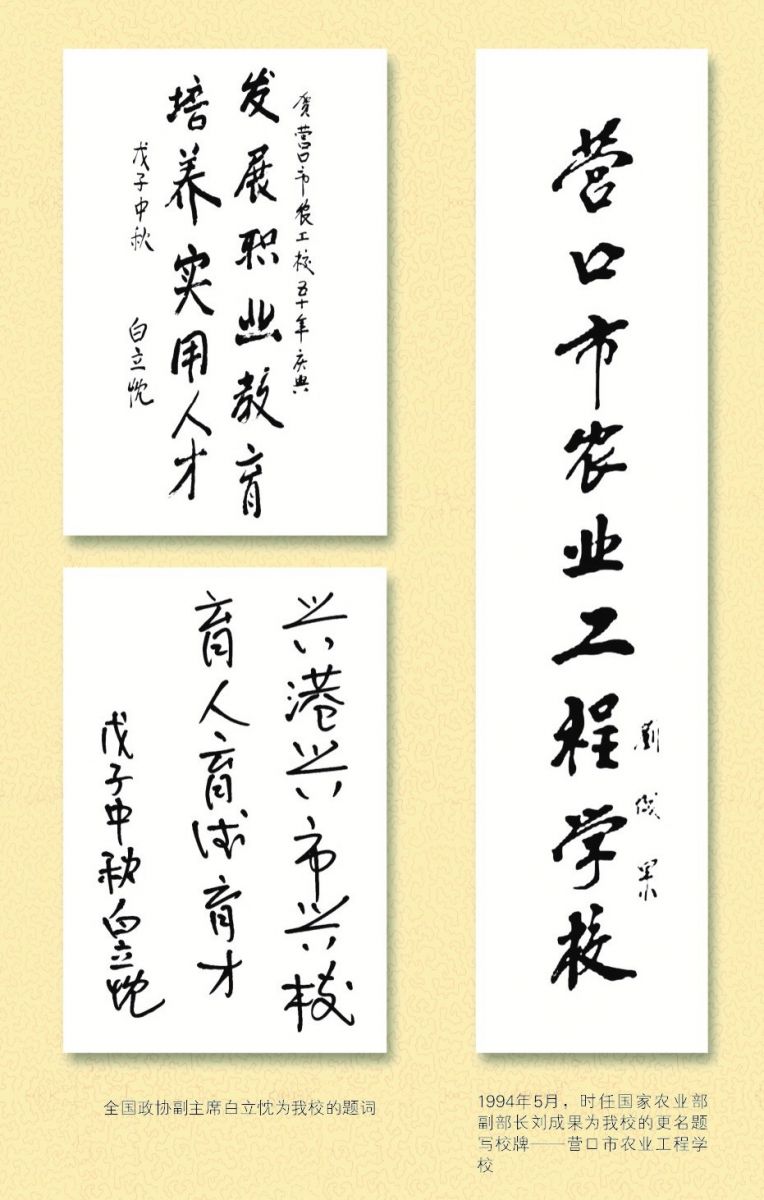 贺营口市农工校五十年庆典
发展职业教育
培养实用人才
戊子中秋 白立忱
兴港兴市兴校
育人育德育才
戊子中秋白立忱
全国政协副主席白立忱为我校的题词
营口市农业工程学校
劉成果
1994年5月，时任国家农业部
副部长刘成果为我校的更名题
写校牌——营口市农业工程学
校